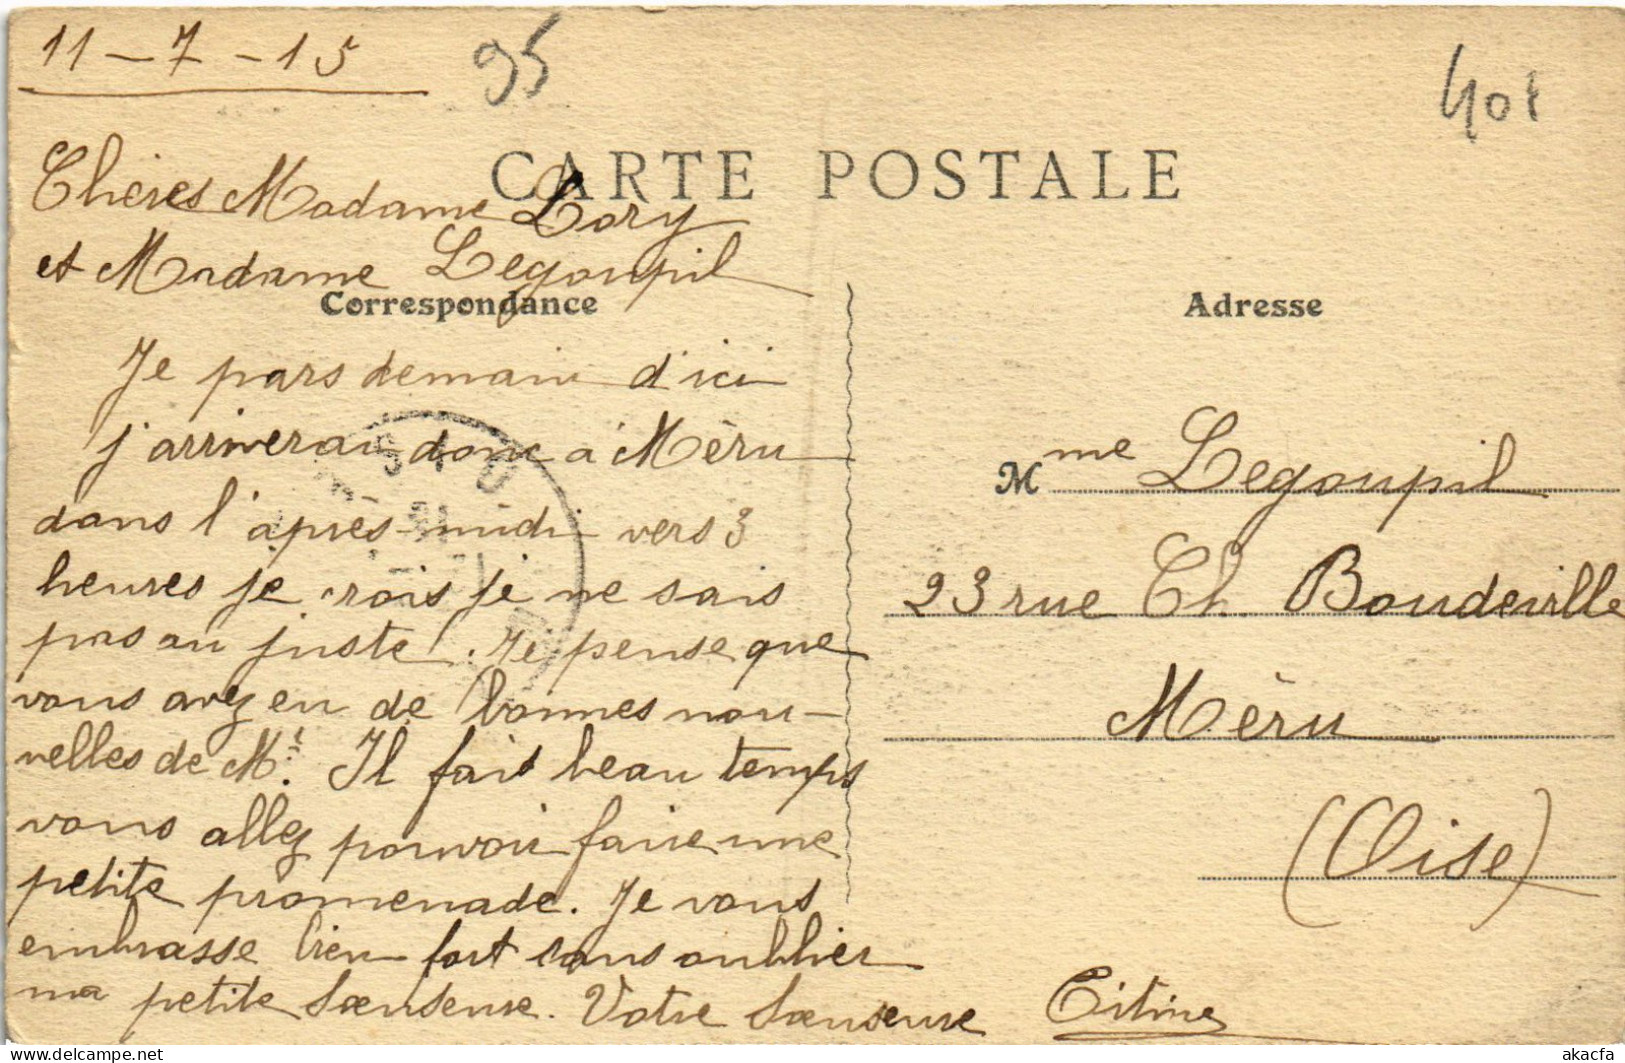 11-7-15
95
401
CARTE POSTALE
Chères Madame Lory
et Madame Legoupil
Correspondance
Adresse
Je pars demain d'ici
j'arriverai donc à Méru
dans l'après-midi vers 3
heures je crois je ne sais
pas au juste. Je pense que
vous avez eu de bonnes nou-
velles de Mr. Il fait beau temps
vous allez pouvoir faire une
petite promenade. Je vous
embrasse bien fort sans oublier
ma petite sœuseuse. Votre sœuseuse Titine
Mme Legoupil
23 rue Ch. Boudeville
Méru
(Oise)
akacfa